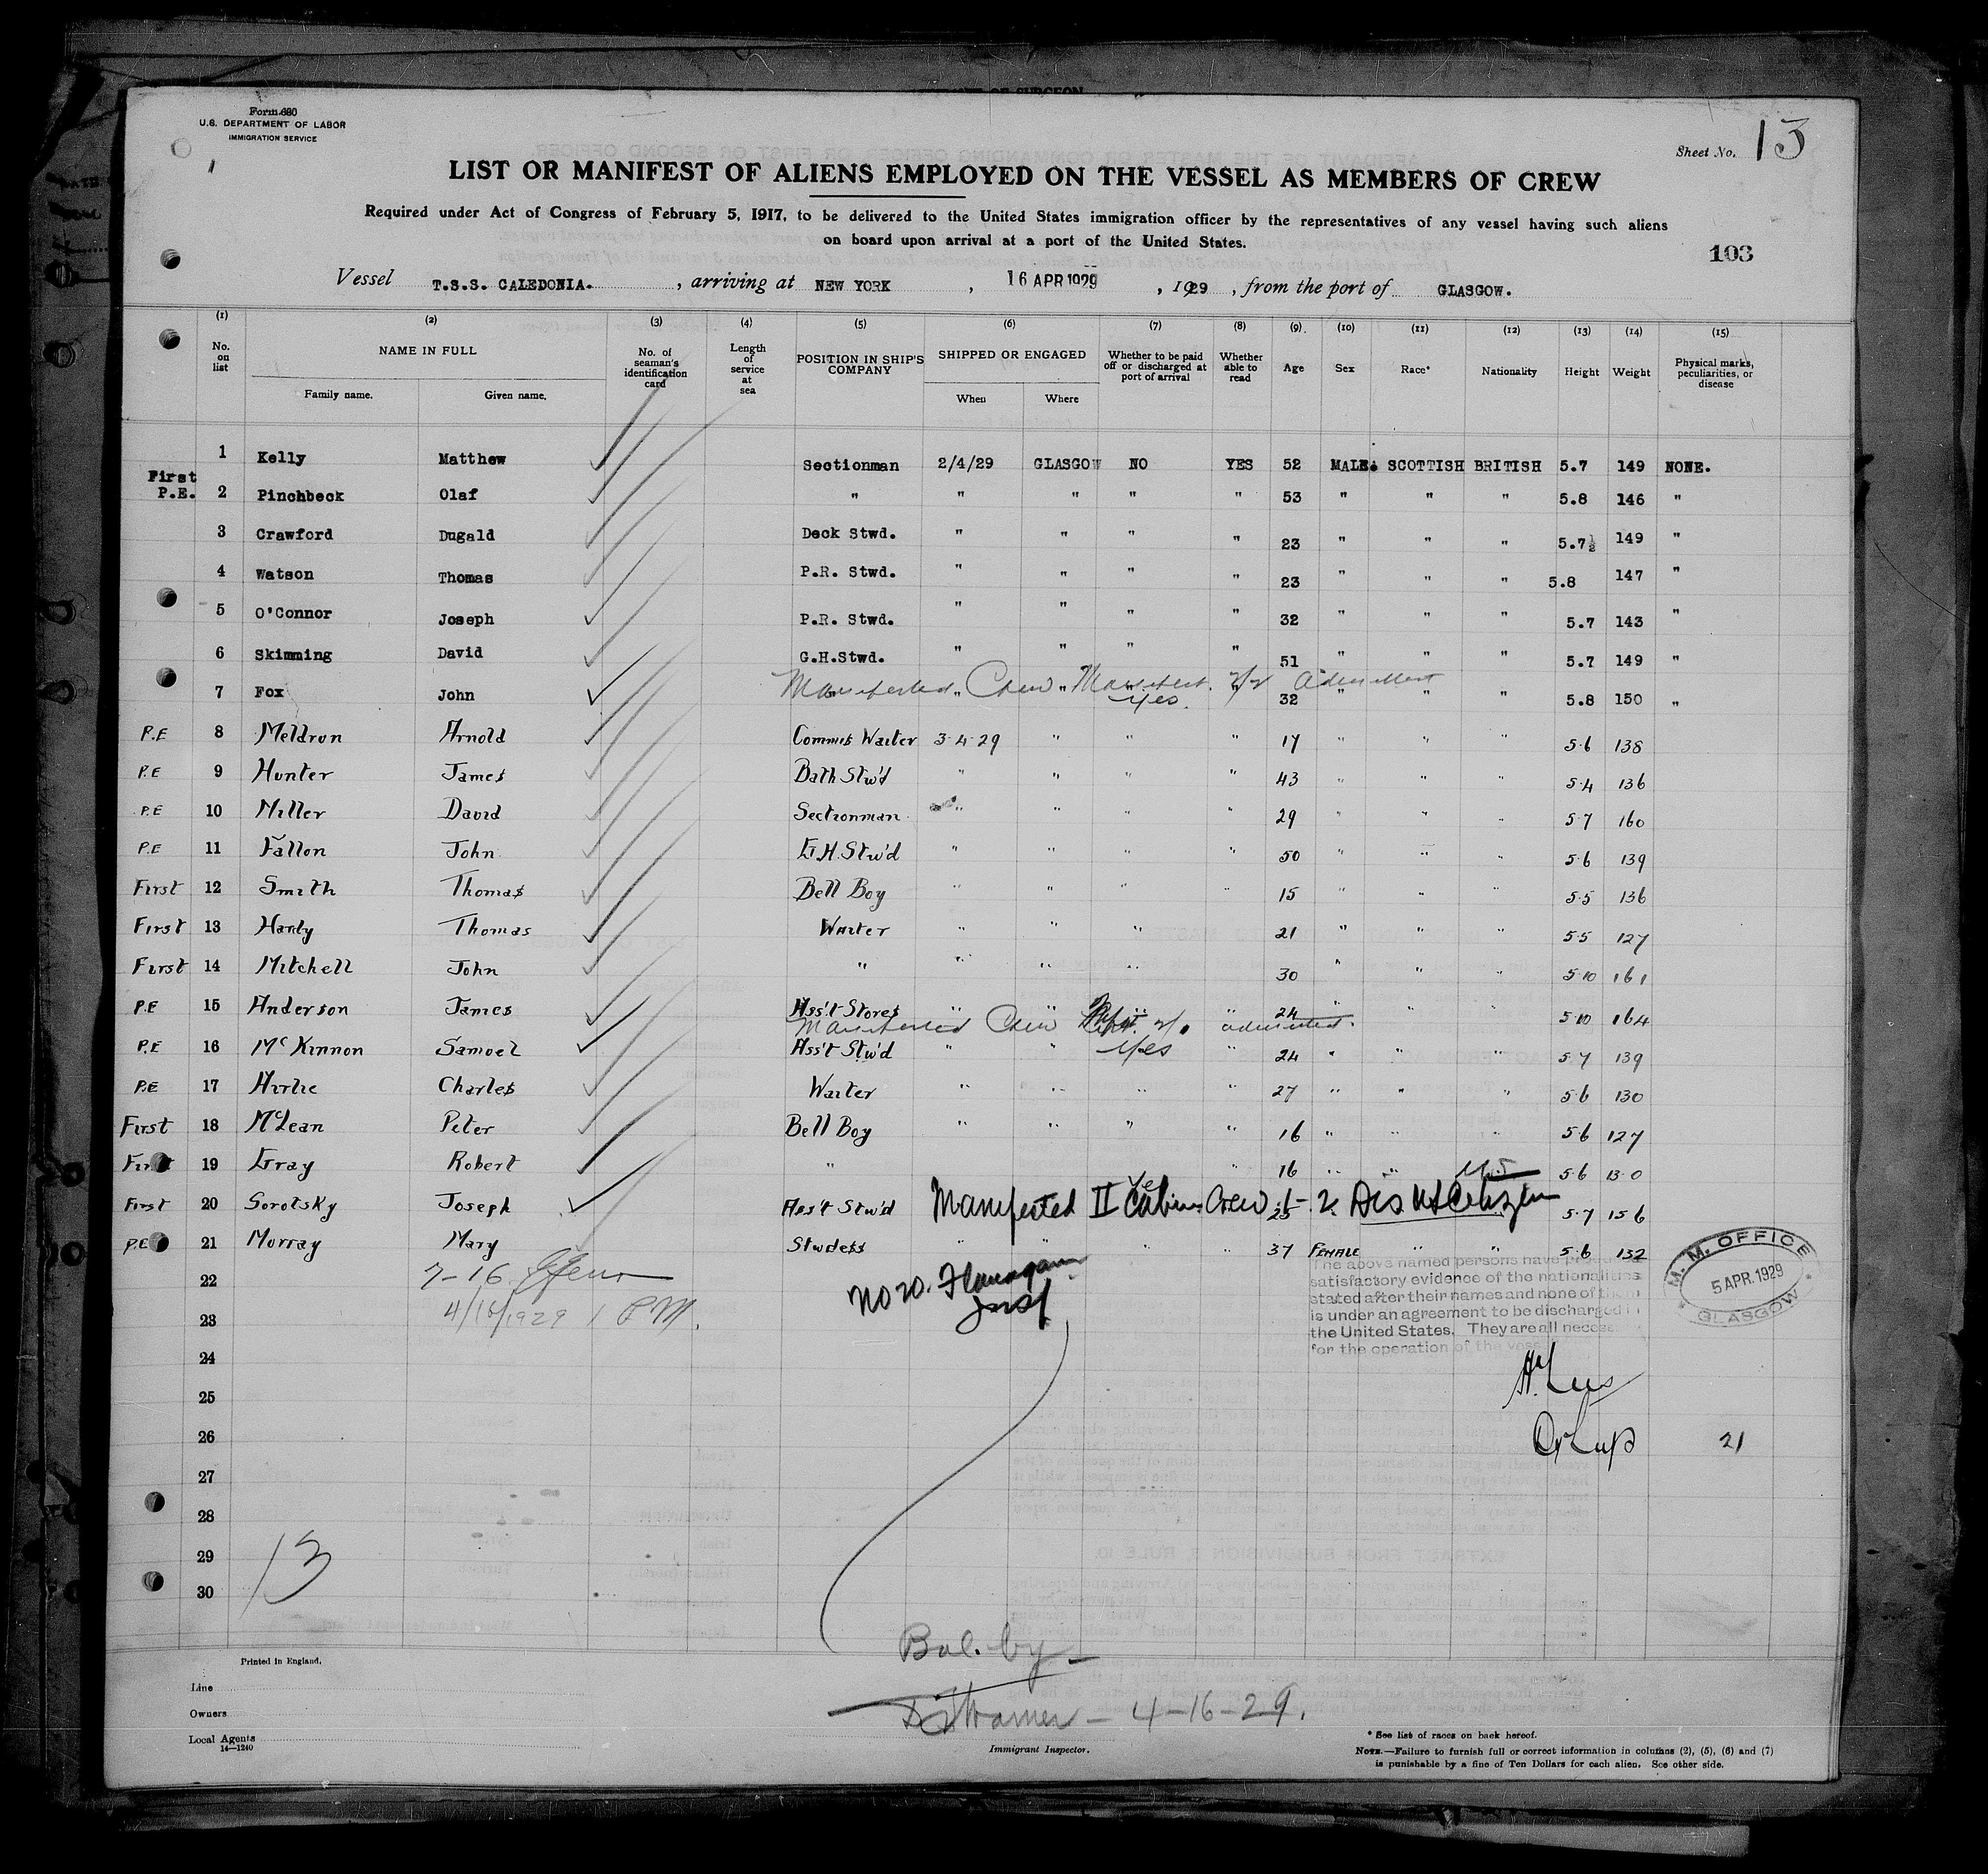 Form 680
U.S. DEPARTMENT OF LABOR
IMMIGRATION SERVICE
Sheet No. 13
LIST OR MANIFEST OF ALIENS EMPLOYED ON THE VESSEL AS MEMBERS OF CREW
Required under Act of Congress of February 5, 1917, to be delivered to the United States immigration officer by the representatives of any vessel having such aliens
on board upon arrival at a port of the United States.
103
Vessel T.S.S. CALEDONIA. , arriving at NEW YORK , 16 APR 1929 , 1929 , from the port of GLASGOW.
(1) (2) (3) (4) (5) (6) (7) (8) (9) (10) (11) (12) (13) (14) (15)
No. on list NAME IN FULL Family name. Given name. No. of seaman's identification card Length of service at sea POSITION IN SHIP'S COMPANY SHIPPED OR ENGAGED When Where Whether to be paid off or discharged at port of arrival Whether able to read Age Sex Race* Nationality Height Weight Physical marks, peculiarities, or disease
1 Kelly Matthew Sectionman 2/4/29 GLASGOW NO YES 52 MALE. SCOTTISH BRITISH 5.7 149 NONE.
First P.E. 2 Pinchbeck Olaf " " " " " 53 " " " 5.8 146 "
3 Crawford Dugald Deck Stwd. " " " " 23 " " " 5.7½ 149 "
4 Watson Thomas P.R. Stwd. " " " " 23 " " " 5.8 147 "
5 O'Connor Joseph P.R. Stwd. " " " " 32 " " " 5.7 143 "
6 Skimming David G.H.Stwd. " " " " 51 " " " 5.7 149 "
Manifested Crew Manifest
7 Fox John " " Yes. 32 " " " 5.8 150 "
P.E 8 Meldron Arnold Commis Waiter 3.4.29 " " " 17 " " " 5.6 138
P.E 9 Hunter James Bath Stw'd " " " " 43 " " " 5.4 136
P.E 10 Miller David Sectionman " " " " 29 " " " 5.7 160
P.E 11 Fallon John G.H. Stw'd " " " " 50 " " " 5.6 139
First 12 Smith Thomas Bell Boy " " " " 15 " " " 5.5 136
First 13 Hardy Thomas Waiter " " " 21 " " " 5.5 127
First 14 Mitchell John " " " " 30 " " " 5.10 161
P.E 15 Anderson James Ass't Stores " " " " 24 " " " 5.10 164
Manifested Crew admitted.
P.E 16 McKinnon Samuel Ass't Stw'd " " Yes " 24 " " " 5.7 139
P.E 17 Charles Waiter " " " " 27 " " " 5.6 130
First 18 McLean Peter Bell Boy " " " " 16 " " " 5.6 127
First 19 Gray Robert " " 16 " " 5.6 130
First 20 Sorotsky Joseph Ass't Stw'd Manifested II Cabin Crew 25 US Citizen 5.7 156
P.E 21 Murray Mary Stwdess " " " " 37 FEMALE " " 5.6 132
22 7-16
No 20. Flanagan
4/16/1929 1 P.M.
23
24
25
26
27
28
29
30
The above named persons have produced
satisfactory evidence of the nationalities
stated after their names and none of them
is under an agreement to be discharged in
the United States. They are all necessary
for the operation of the vessel
M. M. OFFICE
5 APR. 1929
GLASGOW
21
13
Bal. by
4-16-29.
Immigrant Inspector.
Printed in England.
Line
Owners
Local Agents
14—1240
* See list of races on back hereof.
NOTE.—Failure to furnish full or correct information in columns (2), (5), (6) and (7)
is punishable by a fine of Ten Dollars for each alien. See other side.